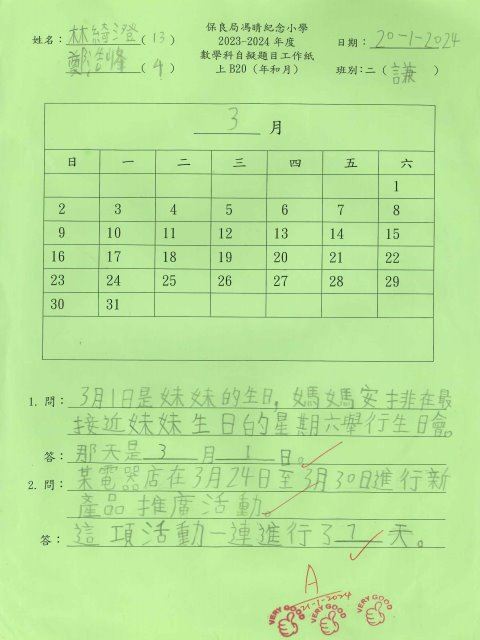 保良局馮晴紀念小學
姓名：林綺澄(13) 2023-2024年度 日期：20-1-2024
數學科自擬題目工作紙
鄭 峰(4) 上B20（年和月） 班別：二（謙）
3 月
日 一 二 三 四 五 六
1
2 3 4 5 6 7 8
9 10 11 12 13 14 15
16 17 18 19 20 21 22
23 24 25 26 27 28 29
30 31
1. 問：3月1日是妹妹的生日，媽媽安排在最
接近妹妹生日的星期六舉行生日會。
答：那天是 3 月 1 日。
2. 問：某電器店在3月24日至3月30日進行新
產品推廣活動。
答：這項活動一連進行了7天。
A
21-1-2024
VERY GOOD
VERY GOOD
VERY GOOD